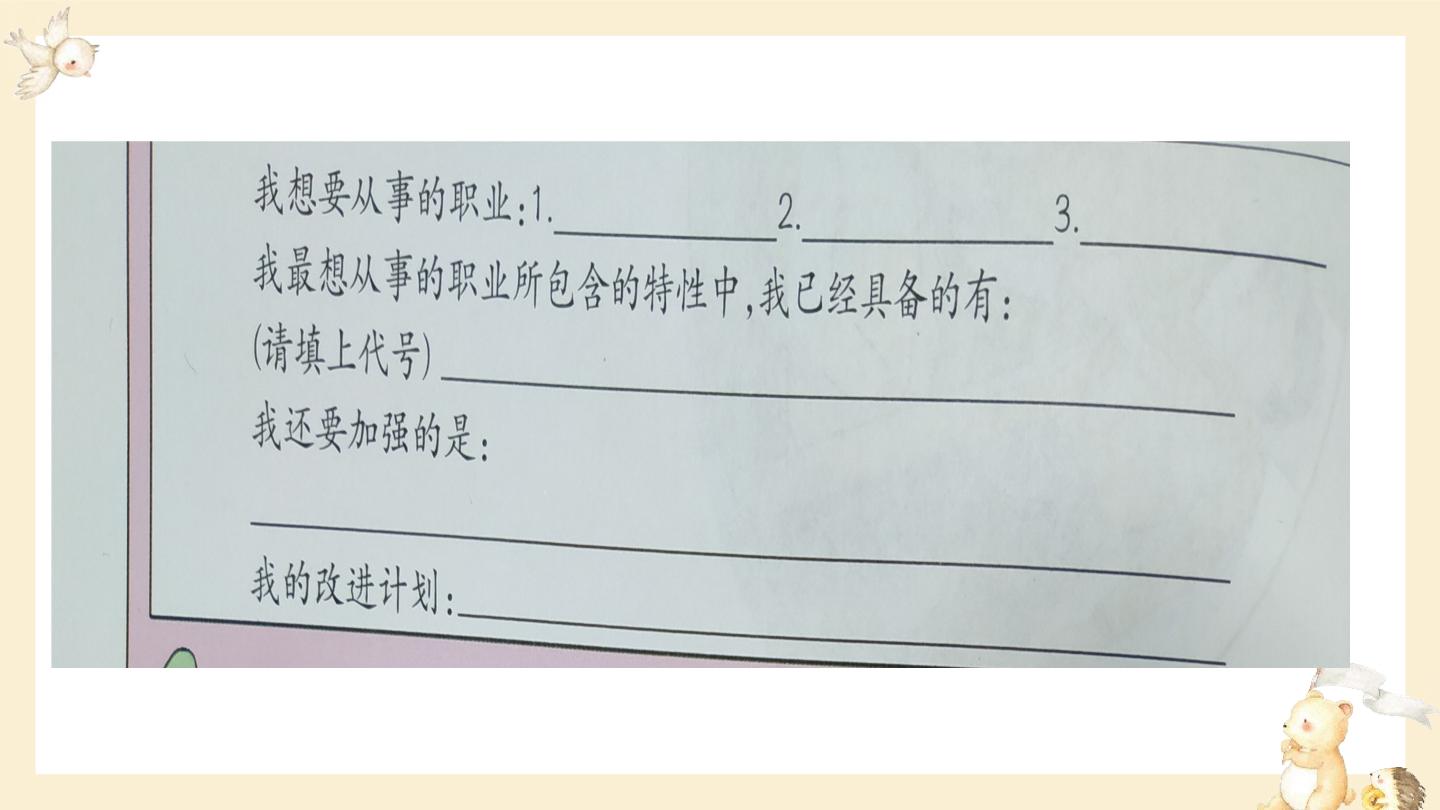 我想要从事的职业:1.____________2.____________3.____________
我最想从事的职业所包含的特性中,我已经具备的有:
(请填上代号)____________
我还要加强的是:
____________
我的改进计划:____________